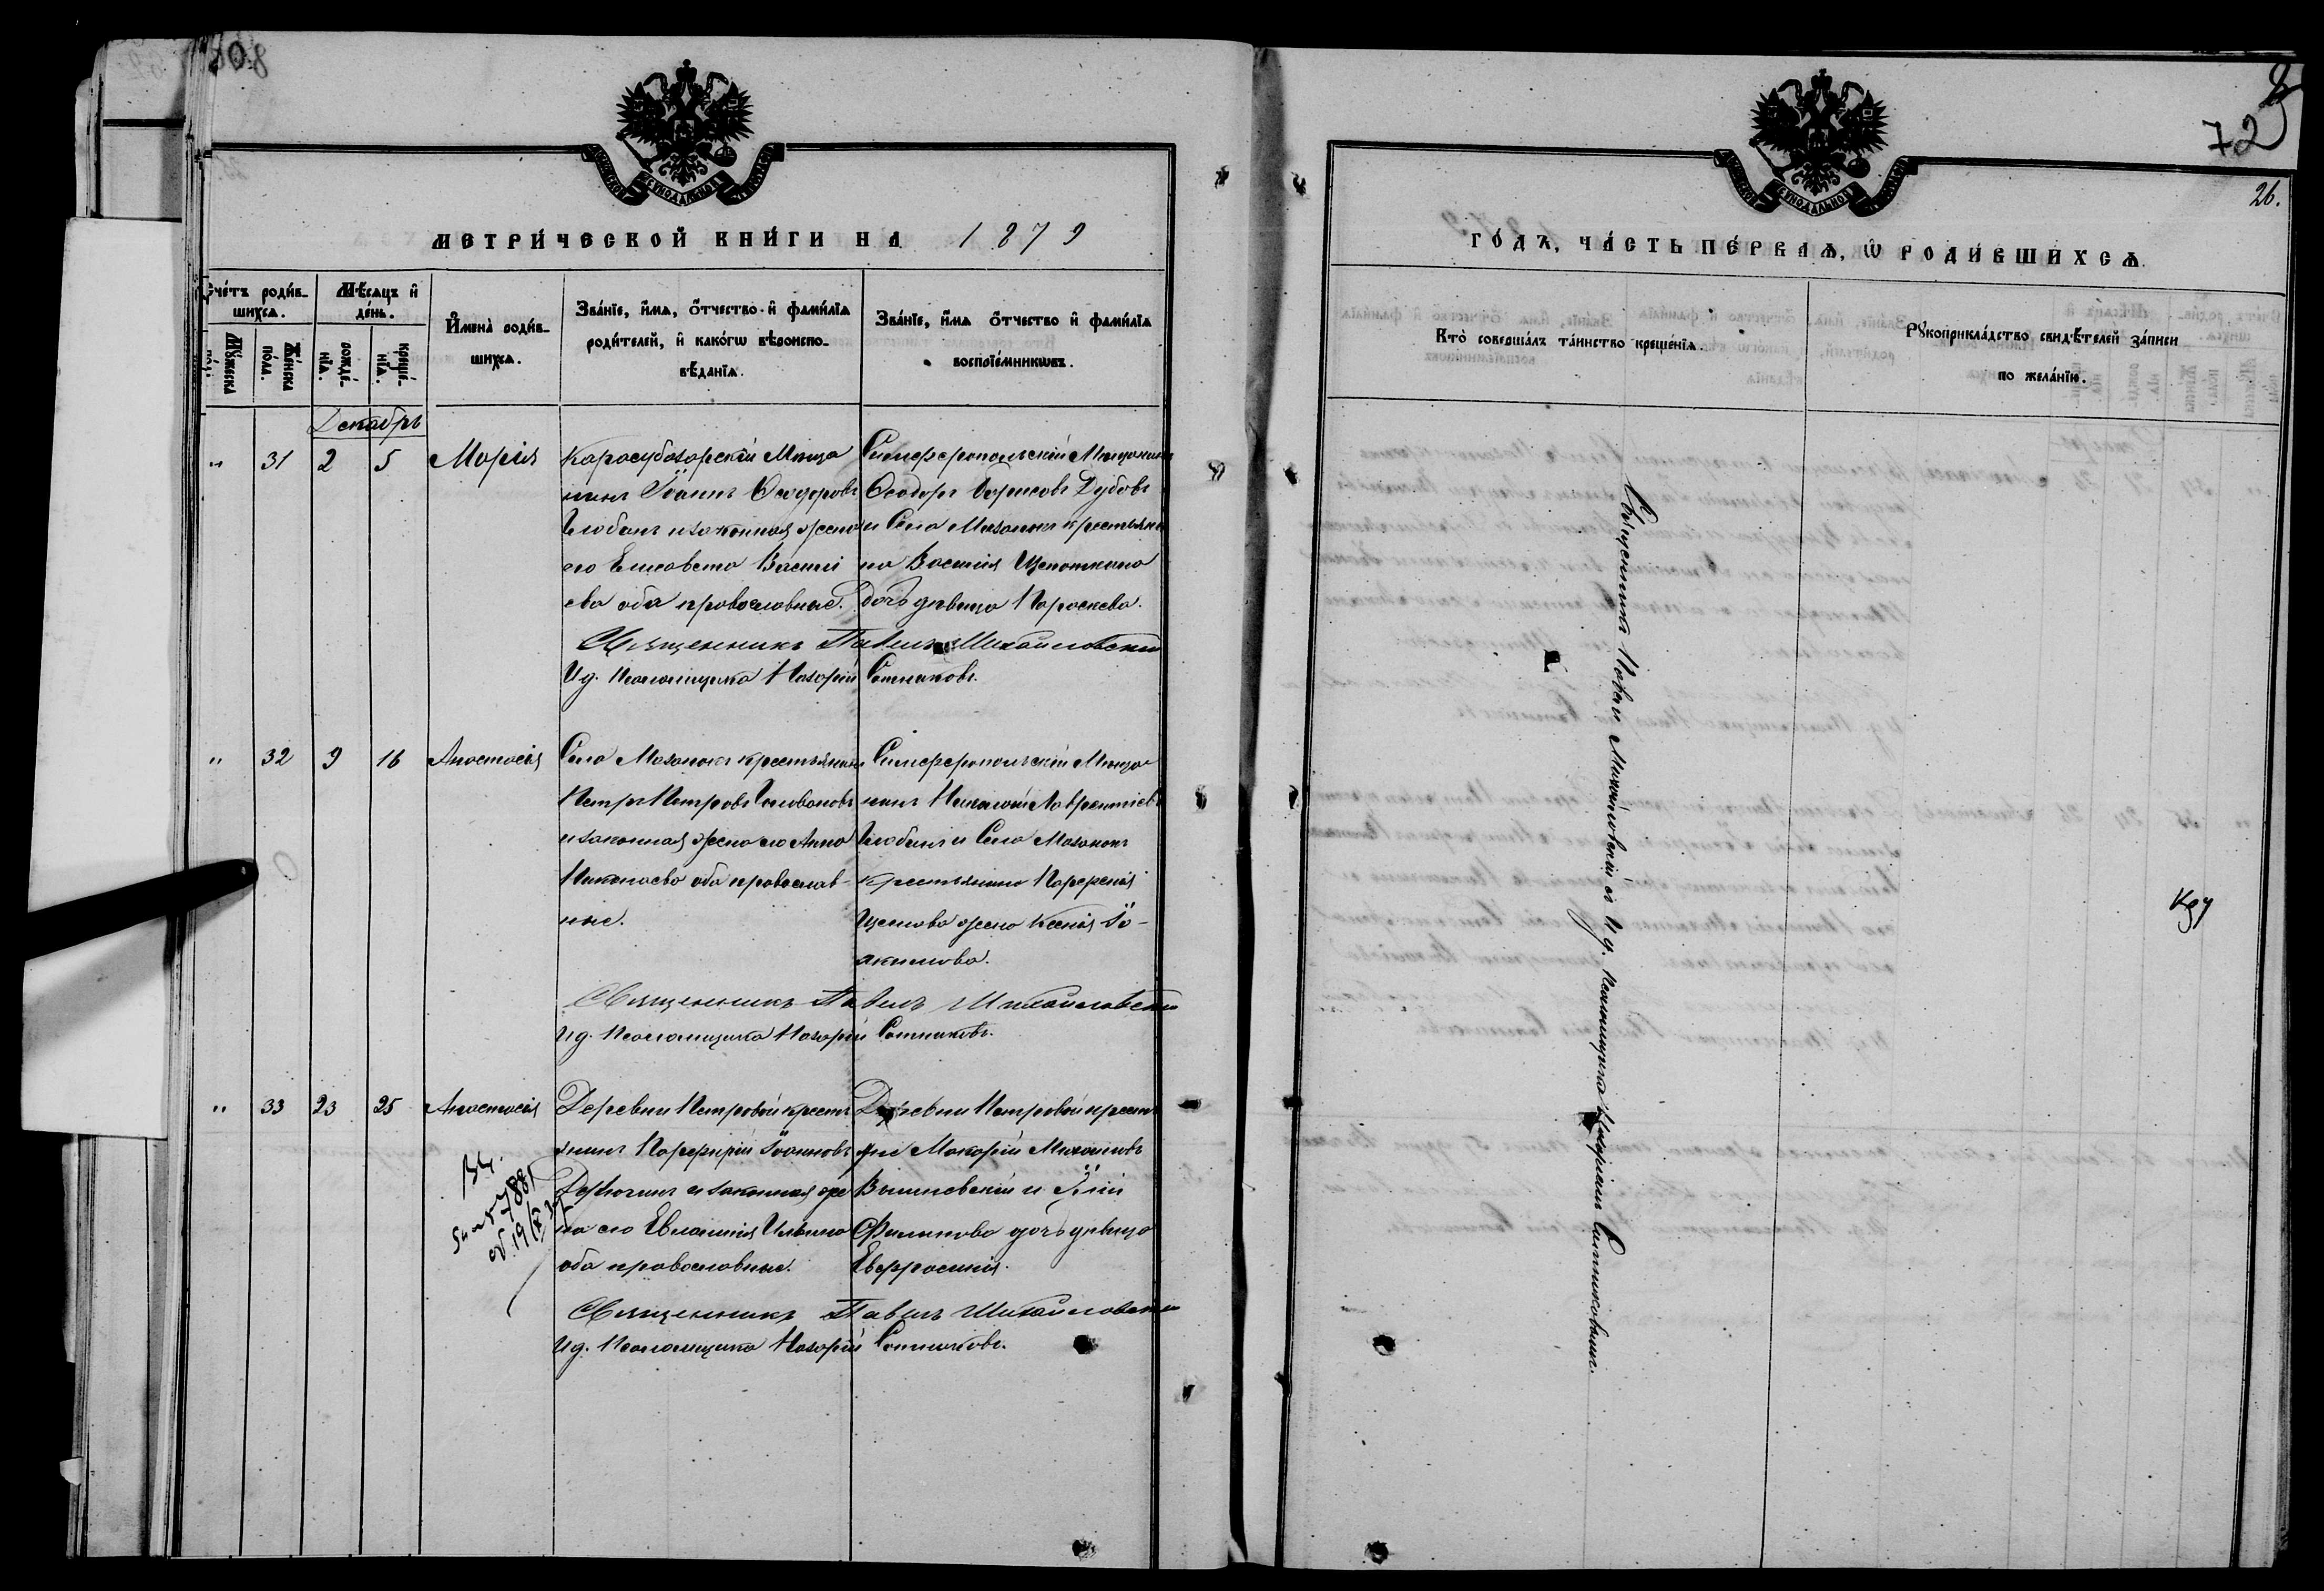 808
МЕТРИ́ЧЕСКОЙ КНИ́ГИ НА 1879
Сче́тъ роди́в-
шихсѧ.
Мꙋ́жеска по́ла
Же́нска по́ла.
Мѣ́сѧцъ и҆
де́нь.
рожде́-
нїѧ.
креще́-
нїѧ.
И҆мена̀ роди́в-
шихсѧ.
Зва́нїе, и҆́мѧ, ѻ҆́тчество и҆ фами́лїѧ
роди́телей, и҆ како́гѡ вѣроиспо-
вѣ́данїѧ.
Зва́нїе, и҆́мѧ ѻ҆́тчество и҆ фами́лїѧ
воспрїе́мникѡвъ.
Декабрь
" 31 2 5 Марія
Карасубазарскій Мѣща
нинъ Іоаннъ Ѳеодоровъ
и законная жена
его Елисавета Василі
ева оба православные.
Симферопольскій Мѣщанинъ
Ѳеодоръ Борисовъ Дубовъ
и Села Мазанки крестьяни
на Василія Щепоткина
дочь дѣвица Параскева.
Священникъ Павелъ Михайловскій
И д. Псаломщика Назарій Сотниковъ.
" 32 9 16 Анастасія
Села Мазанки крестьянинъ
Петръ Петровъ
и законная жена его Анна
Николаева оба православ-
ные.
Симферопольскій Мѣща
нинъ Николай Лаврентіевъ
и Села Мазанки
крестьянина Парфенія
жена Ксенія Іо-
акимова.
Священникъ Павелъ Михайловскій
И д. Псаломщика Назарій Сотниковъ.
" 33 23 25 Анастасія
Деревни Петровой кресть
янинъ Парфирій Іоанновъ
и законная же
на его Евлампія Ильина
оба православные.
Деревни Петровой кресть
яне Макарій Михаиловъ
Вышневскій и
Филипова дочь дѣвица
Евфросинія.
Священникъ Павелъ Михайловскій
И д. Псаломщика Назарій Сотниковъ.
72
26.
ГО́ДЪ, ЧА́СТЬ ПЕ́РВАѦ, Ѡ҆ РОДИ́ВШИХСѦ.
Кто̀ соверша́лъ та́инство креще́нїѧ.
Рꙋкоприкла́дство свидѣ́телей за́писи
по жела́нїю.
Священникъ Павелъ Михайловскій съ И д. псаломщика Назаріемъ Сотниковымъ.